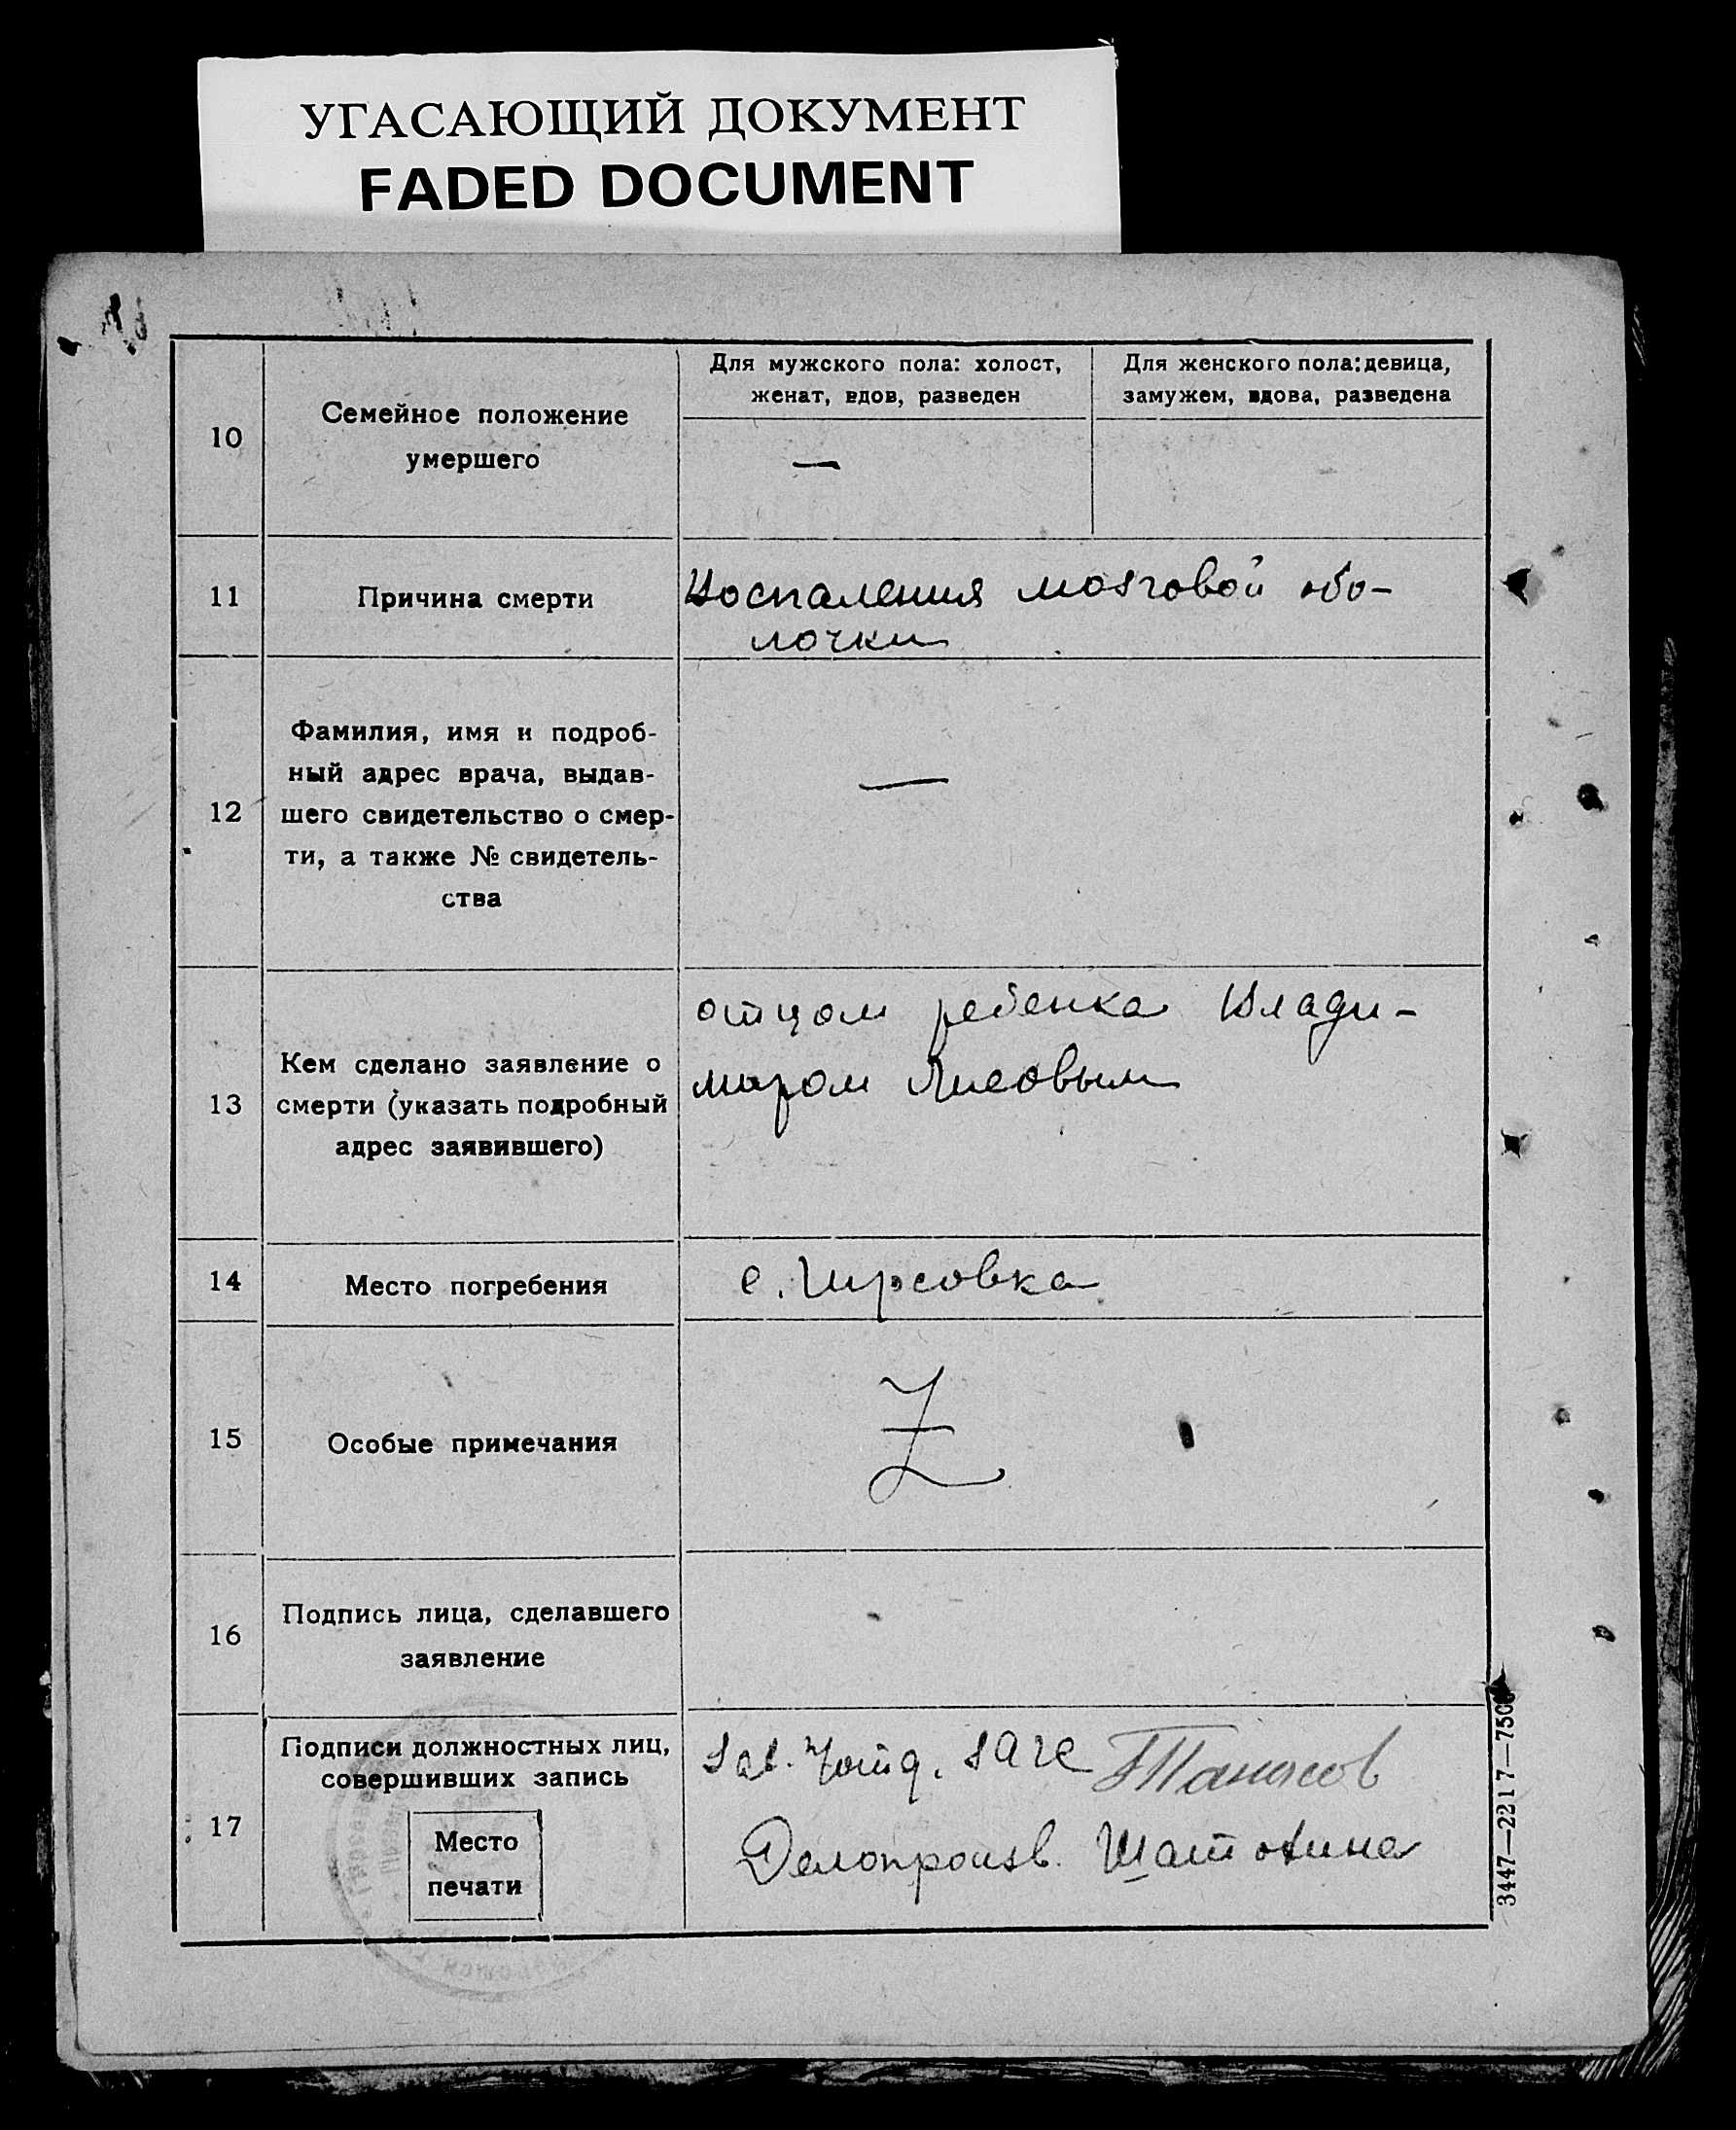 УГАСАЮЩИЙ ДОКУМЕНТ
FADED DOCUMENT
10
Семейное положение
умершего
Для мужского пола: холост,
женат, вдов, разведен
Для женского пола: девица,
замужем, вдова, разведена
—
11
Причина смерти
Воспаления мозговой обо-
лочки
12
Фамилия, имя и подроб-
ный адрес врача, выдав-
шего свидетельство о смер-
ти, а также № свидетель-
ства
—
13
Кем сделано заявление о
смерти (указать подробный
адрес заявившего)
отцом ребенка Влади-
миром
14
Место погребения
с. Чирсовка
15
Особые примечания
Z
16
Подпись лица, сделавшего
заявление
17
Подписи должностных лиц,
совершивших запись
Место
печати
Зав. загс Танасов
Делопроизв. Шатохина
3447—2217—750